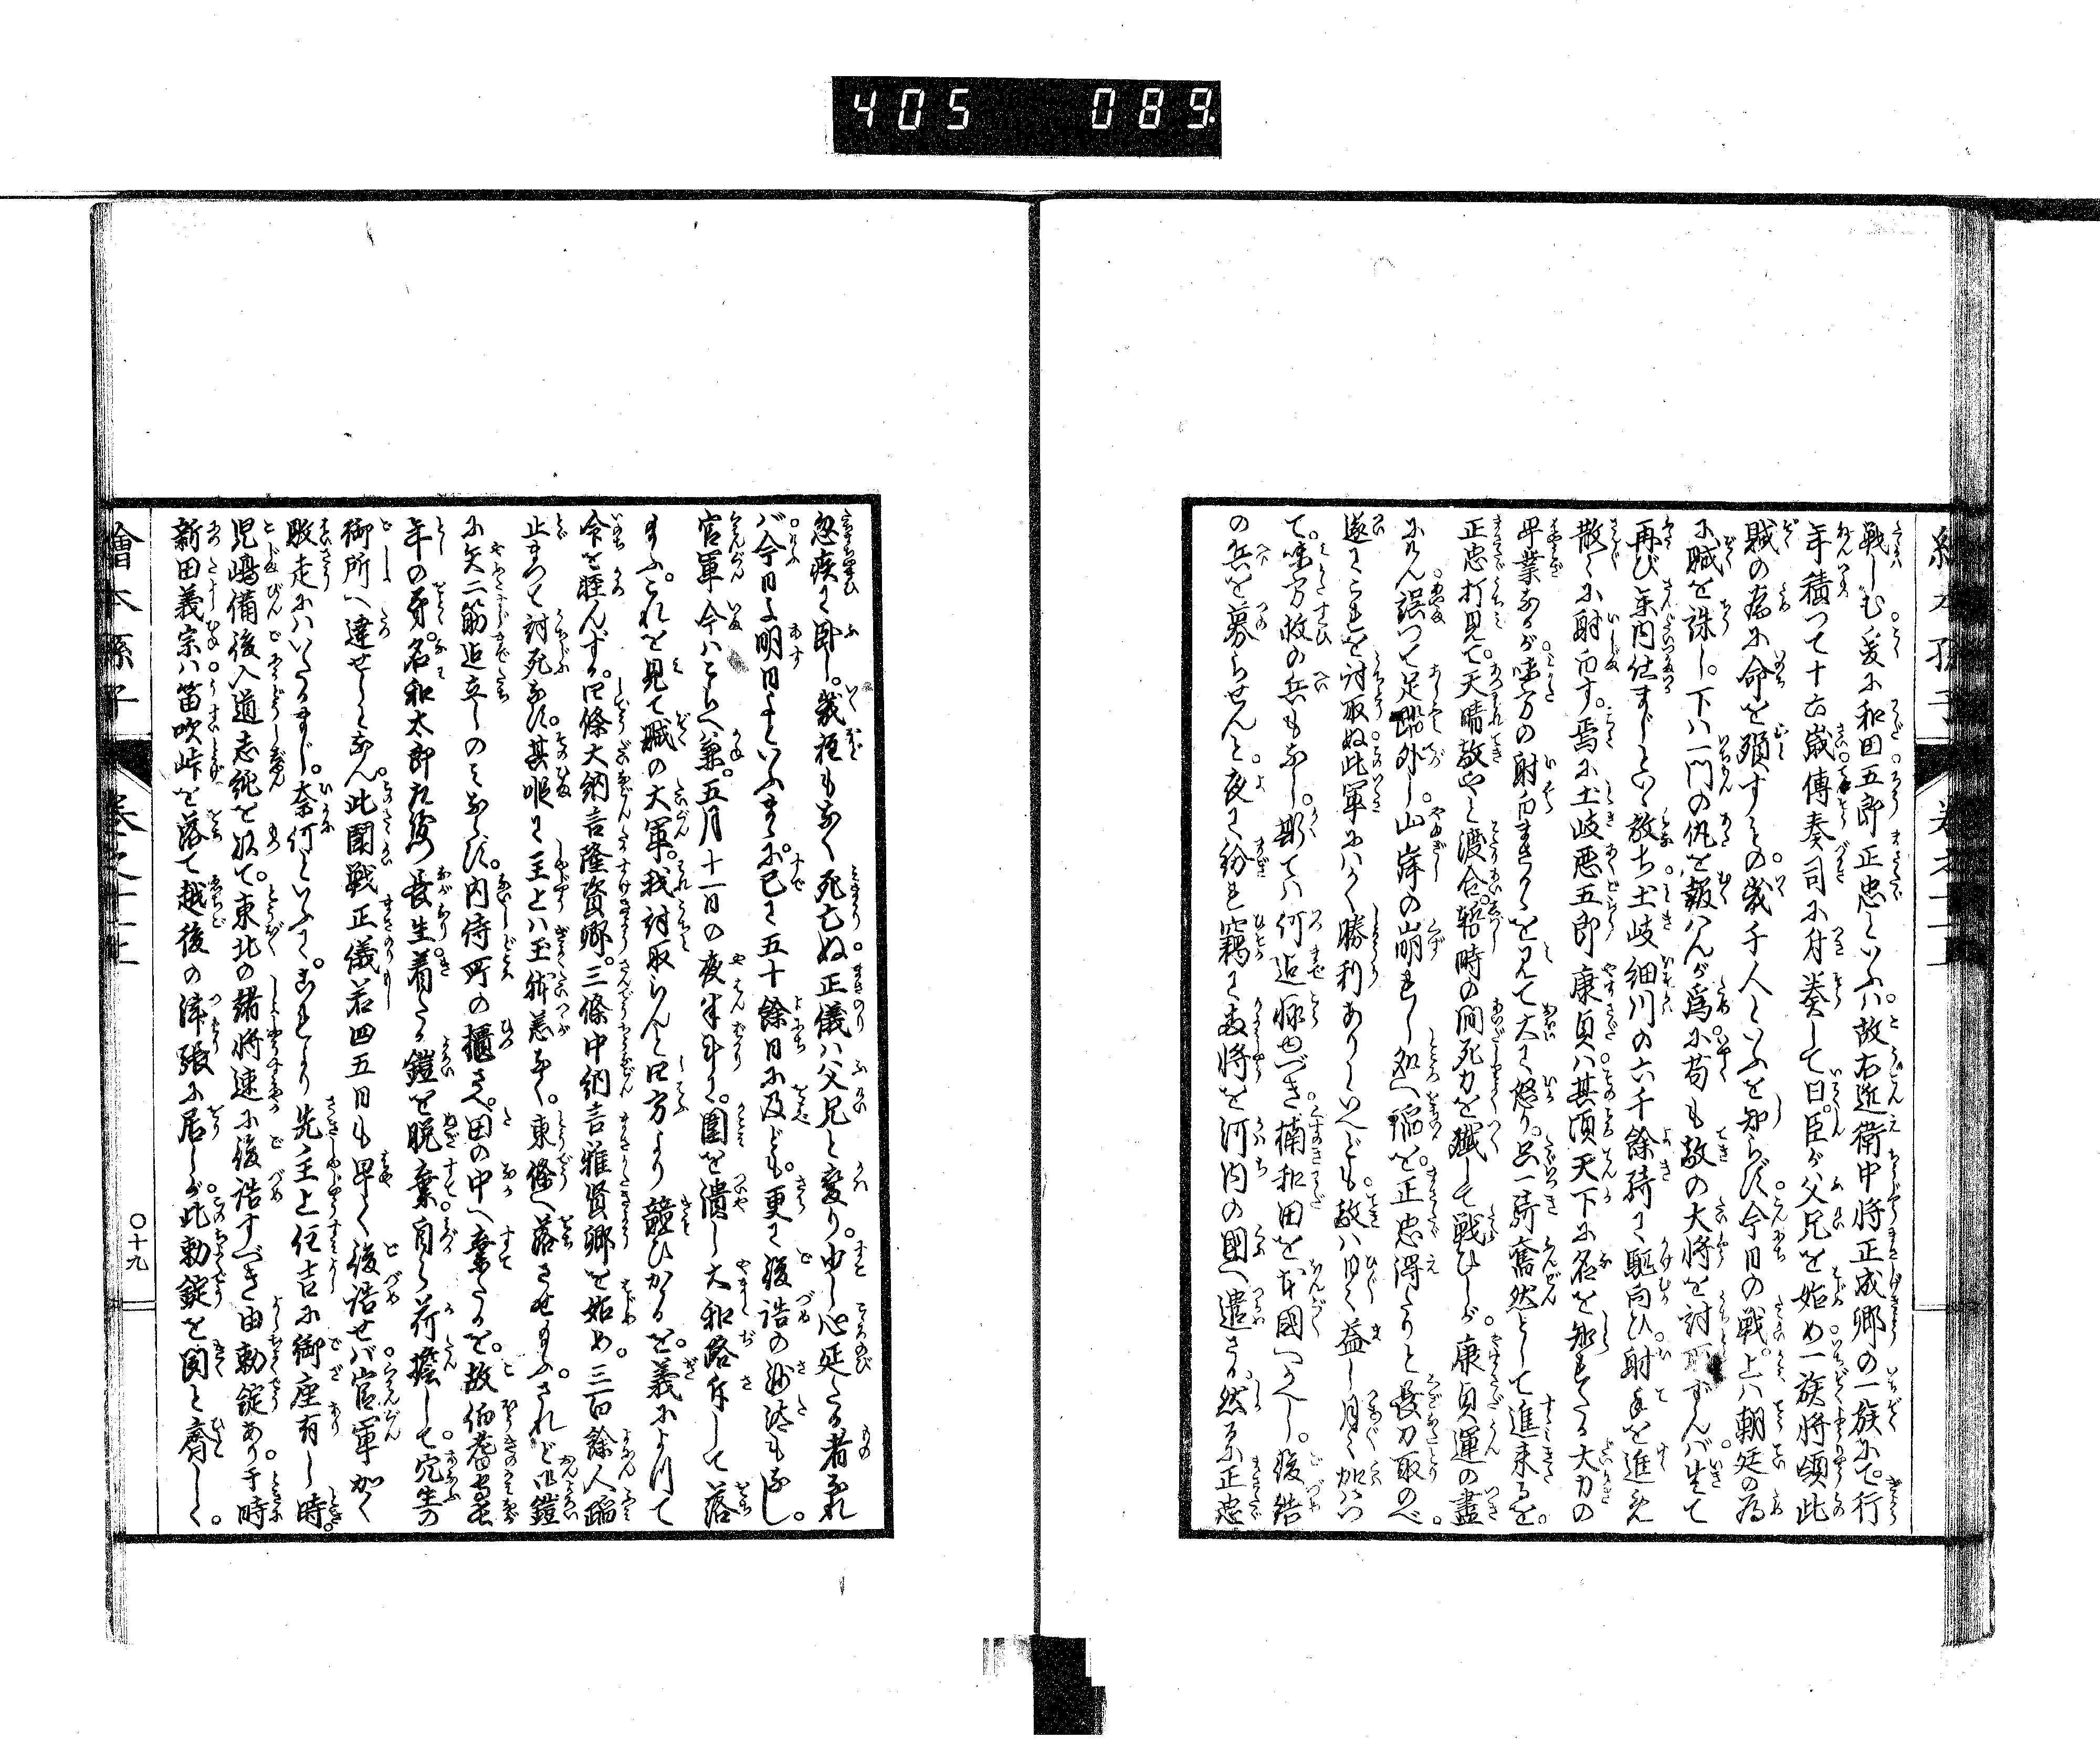 405 089.
戦しむ爰に和田五郎正忠といふハ故右近衛中将正成卿の一族にて行
年積つて十六歳傳奏司に付奏して曰臣が父兄を始め一族將領此
賊の為に命を殞すもの幾千人といふを知らず今日の戦上ハ朝廷の為
に賊を誅し下ハ一門の仇を報ハんが為に苟も敵の大将を討取ずんバ生て
再び案内仕まじといひ放ち土岐細川の六千餘騎に駆向ひ射手を進めて
散々に射白す焉に土岐悪五郎康貞ハ其頃天下に名を知れたる大力の
早業なるが味方の射白まさるゝを見て大に怒り只一騎奮然として進来るを
正忠打見て天晴敵やと渡合暫時の間死力を殲して戦ひしが康貞運の盡
にや誤つて足踏外し山岸の崩れし処へ陥を正忠得たりと長刀取のべ
遂にこれを討取ぬ此軍にハかく勝利ありといへども敵ハ日々益し月々加ハつ
て味方救の兵もなし斯てハ何迄怺ゆべき楠和田を本國へかへし後詰
の兵を募らせんと夜に紛れ竊に両将を河内の國へ遣さる然るに正忠
繪本孫子
忽疾に卧し幾程もなく死亡ぬ正儀ハ父兄と変り少し心延たる者なれ
バ今日よ明日よといふまゝに已に五十餘日に及ども更に後詰の沙汰もなし
官軍今ハこらへ兼五月十一日の夜半斗に圍を潰し大和路斥して落
まふこれを見て賊の大軍我討取らんと四方より競ひかゝるを義によつて
命を軽んずる四條大納言隆資卿三條中納言雅賢卿を始め三百餘人蹈
止まつて討死なす其隙に主上ハ玉躰恙なく東條へ落させまふされど御鎧
に矢二筋迄立しのミならず内侍所の櫃さへ田の中へ棄たるを故伯耆守長
年の弟名和太郎左衛門長生着たる鎧を脱棄自ら荷擔して穴生の
御所へ達せしとなん此閗戦正儀若四五日も早く後詰せバ官軍かく
敗走にハいたるまじ奈何といふにこれより先主上住吉に御座有し時
児嶋備後入道志純を以て東北の諸将速に後詰すべき由勅錠あり于時
新田義宗ハ笛吹峠を落て越後の津張に居しが此勅錠を聞と齊しく
繪本孫子
巻之十上
〇十九